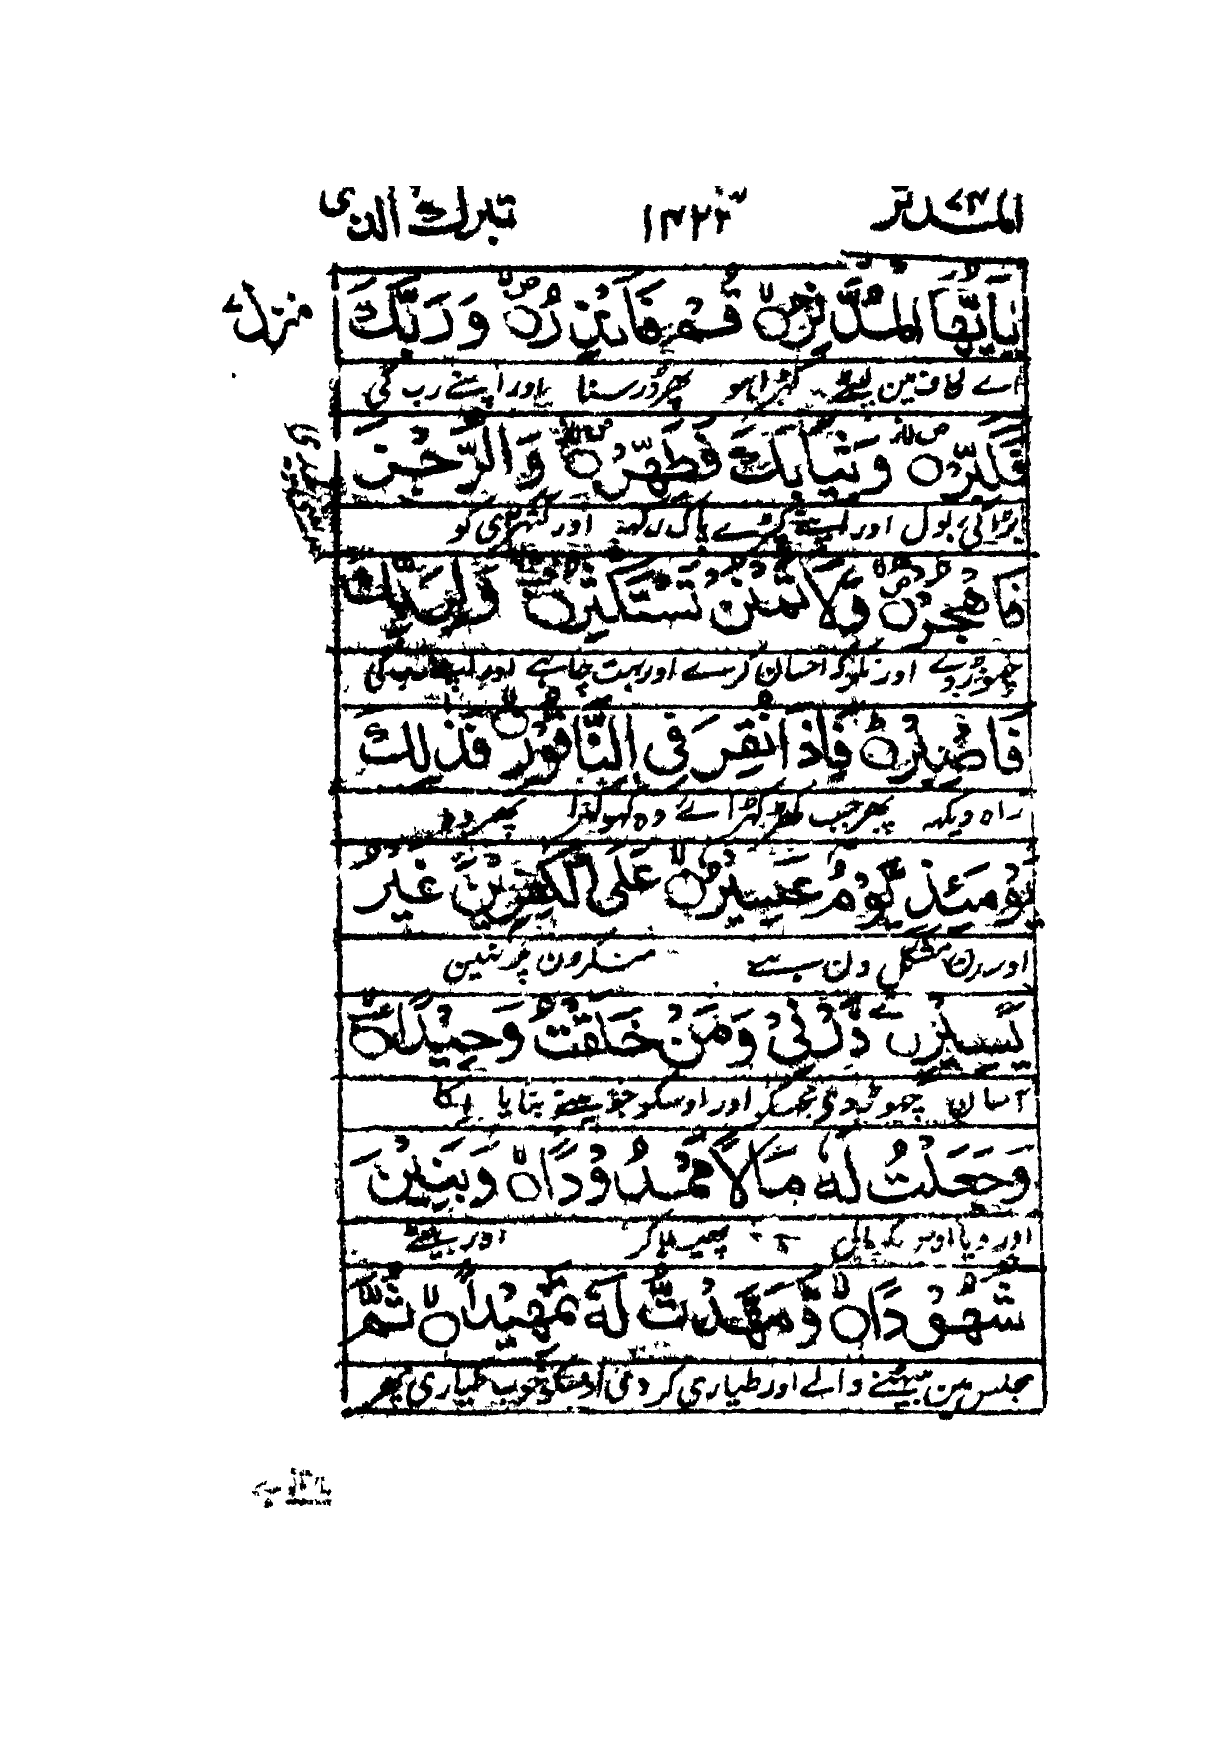 المدثر ٧٤ ١٤٢٢ تبرك الذی
منزل ٧
يٰٓاَيُّهَا الْمُدَّثِّرُ ۙ قُمْ فَاَنْذِرْ ۙ وَرَبَّكَ
اے لحاف مین لپٹے کھڑا ہو پھر ڈر سنا اور اپنے رب کی
فَكَبِّرْ ۙ وَثِيَابَكَ فَطَهِّرْ ۙ وَالرُّجْزَ
بڑائی بول اور اپنے کپڑے پاک رکھہ اور ستھری کو
فَاهْجُرْ ۙ وَلَا تَمْنُنْ تَسْتَكْثِرُ ۙ وَلِرَبِّكَ
چھوڑ دے اور نہ کر احسان کرے اور بہت چاہے اور اپنے رب کی
فَاصْبِرْ ۙ فَاِذَا نُقِرَ فِى النَّاقُوْرِ ۙ فَذٰلِكَ
راہ دیکھہ پھر جب کھڑکھڑائے وہ کھوکھرا پھر وہ
يَوْمَئِذٍ يَّوْمٌ عَسِيْرٌ ۙ عَلَى الْكٰفِرِيْنَ غَيْرُ
اور دن مشکل دن ہے منکرون پر نہین
يَسِيْرٍ ذَرْنِىْ وَمَنْ خَلَقْتُ وَحِيْدًا ۙ
آسان چھوڑ دی مجھکو اور اوسکو جو مینے بنایا اکا
وَجَعَلْتُ لَهٗ مَالًا مَّمْدُوْدًا ۙ وَبَنِيْنَ
اور دیا اوسکو مال پھیلا کر اور بیٹے
شُهُوْدًا ۙ وَّمَهَّدْتُّ لَهٗ تَمْهِيْدًا ۙ ثُمَّ
مجلس مین بیٹھنے والے اور طیاری کر دی اوسکو خوب طیاری پھر